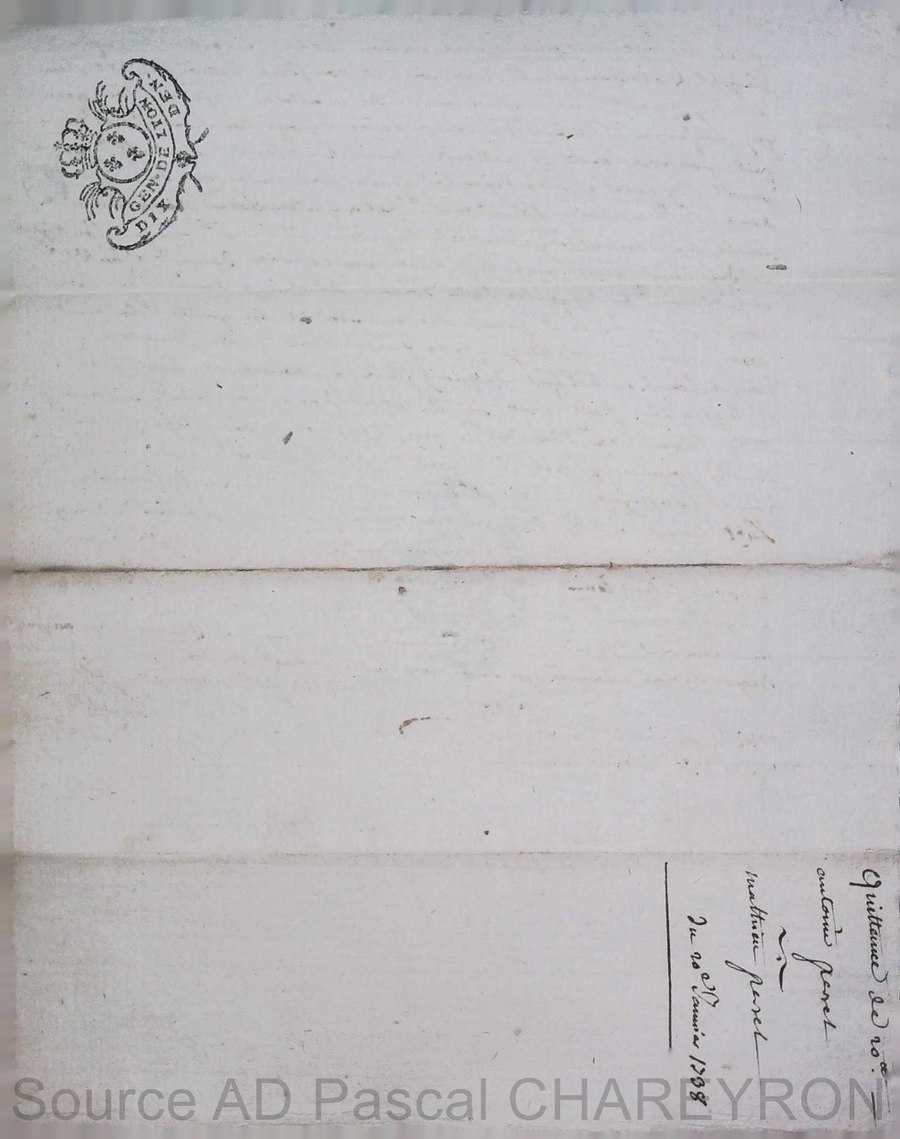 GEN. DE LYON
DIX DEN
Quittance de 20ᵗᵗ.
antoine peret
à
mathieu peret
du 20 Janvier 1788
Source AD Pascal CHAREYRON